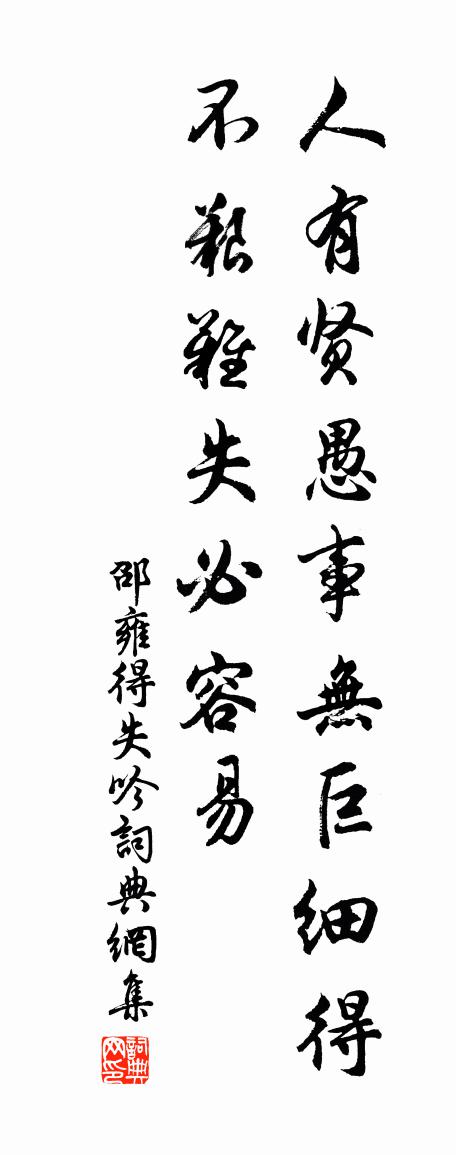 人有贤愚事無巨细得
不艱難失必容易
邵雍得失吟詞典網集
詞典网印